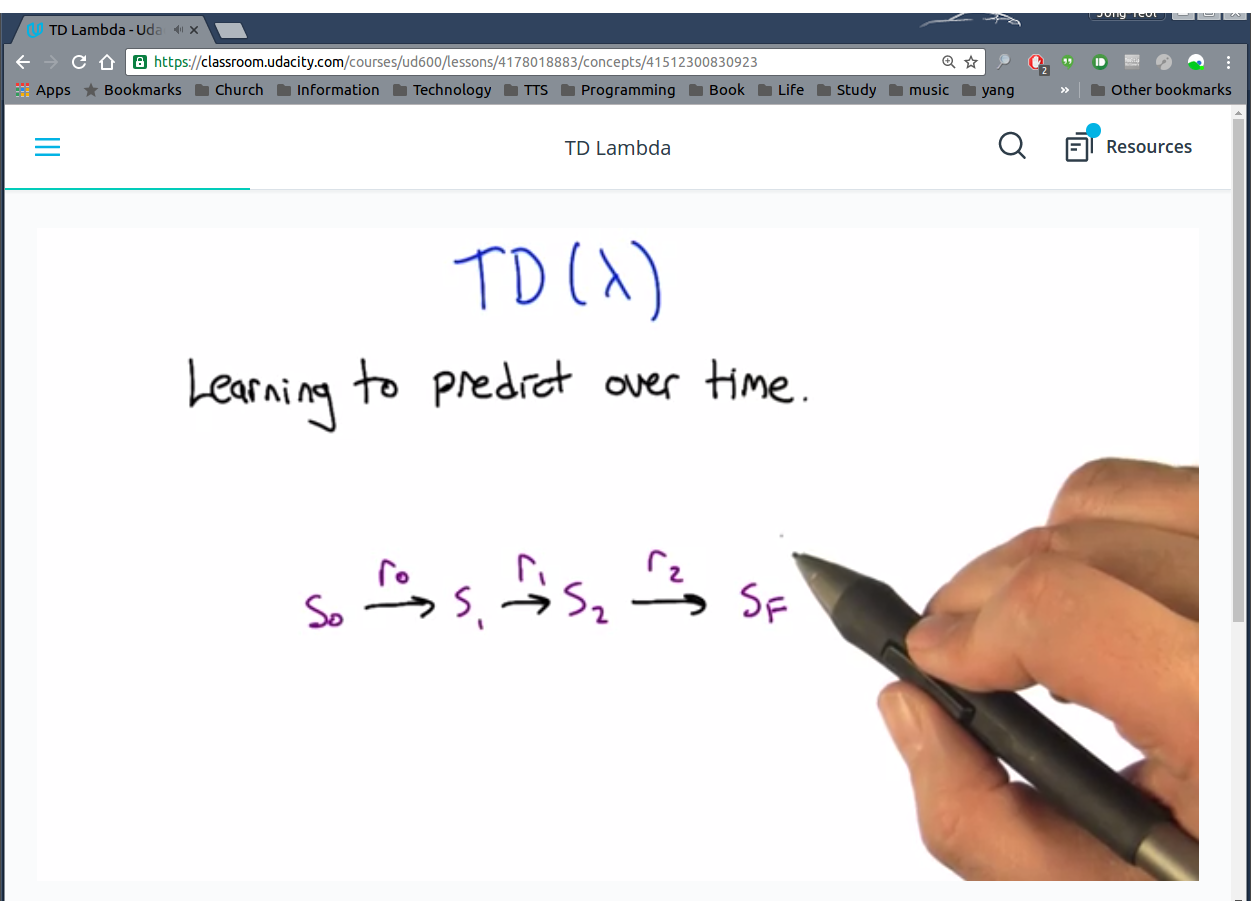 Jong Yeol
TD Lambda - Uda
https://classroom.udacity.com/courses/ud600/lessons/4178018883/concepts/41512300830923
2
Apps Bookmarks Church Information Technology TTS Programming Book Life Study music yang » Other bookmarks
TD Lambda
Resources
TD(λ)
Learning to predict over time.
r₀ r₁ r₂
S₀ → S₁ → S₂ → S_F